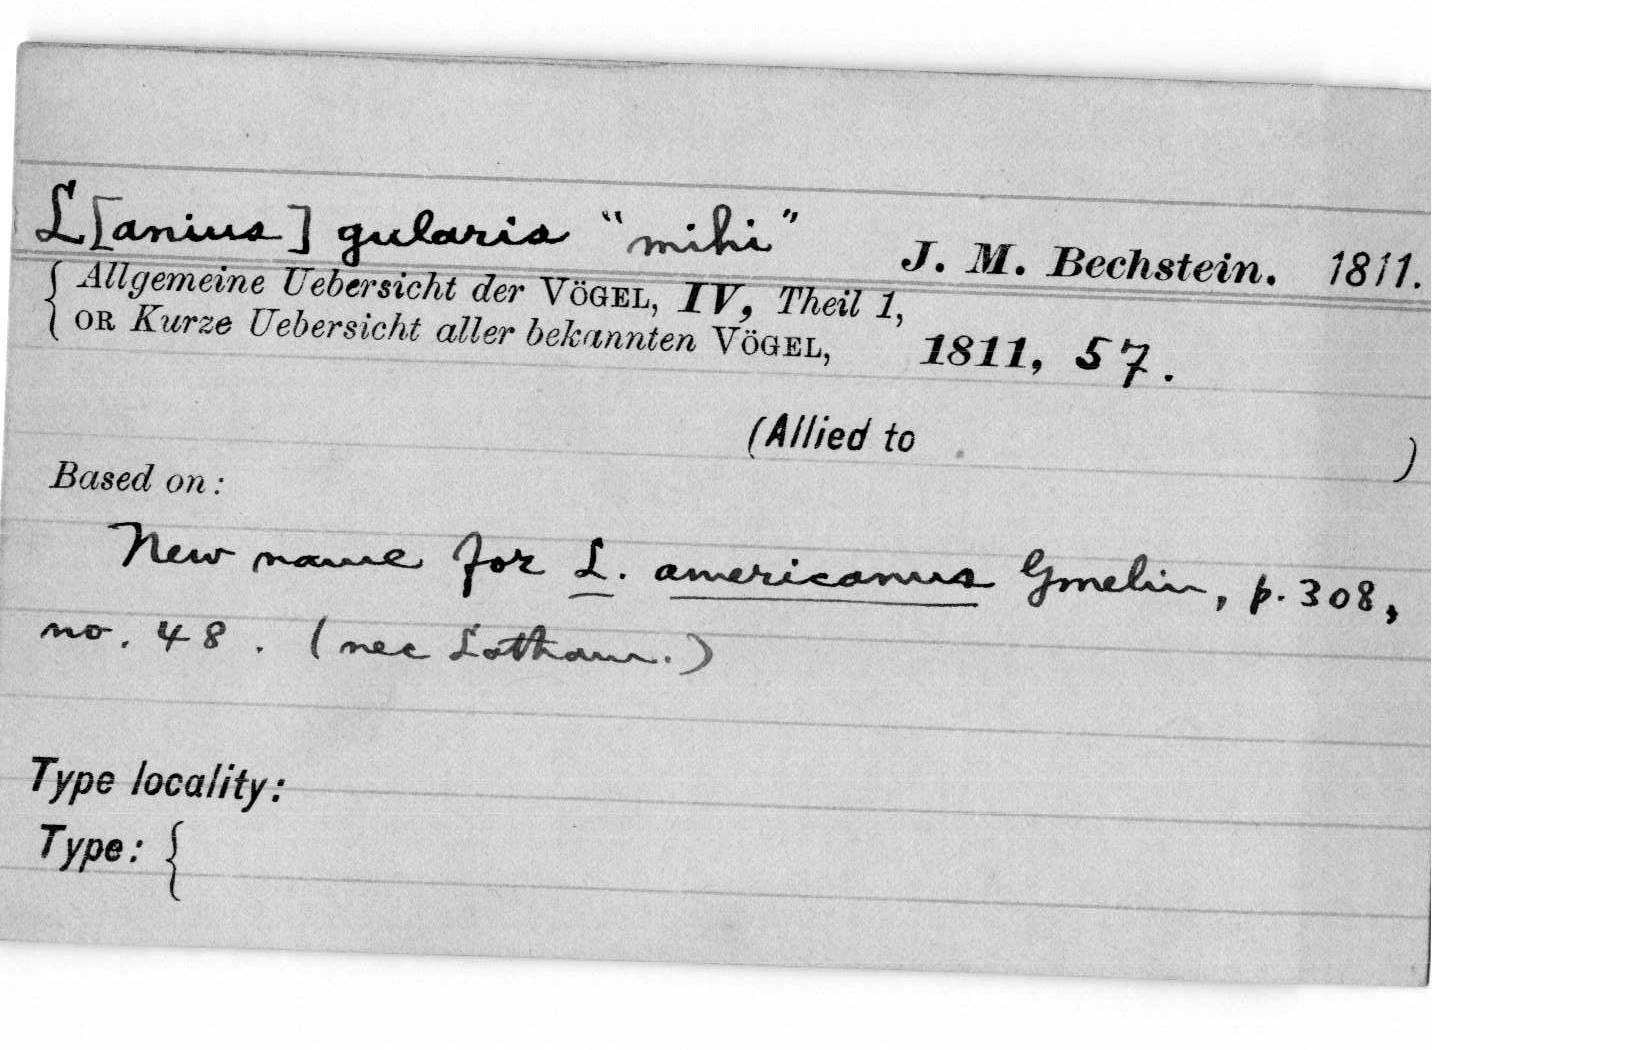 L[anius] gularis "mihi" J. M. Bechstein. 1811.
{ Allgemeine Uebersicht der VÖGEL, IV, Theil 1,
OR Kurze Uebersicht aller bekannten VÖGEL, 1811, 57.
(Allied to )
Based on:
New name for L. americanus Gmelin, p. 308,
no. 48. (nec Latham.)
Type locality:
Type: {